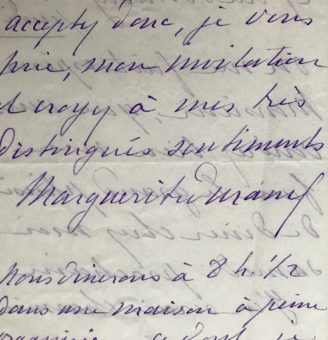 acceptez donc, je vous
prie, mon invitation
et croyez à mes très
distingués sentiments
Marguerite Durand
Nous dinerons à 8 h 1/2
dans une maison à peine